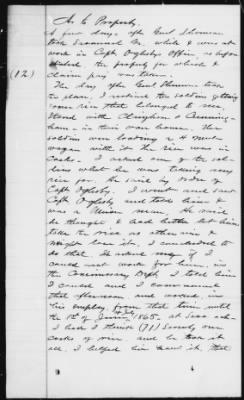 As to Property
A few days after Genl Sherman
took Savannah Ga while I was at
work in Capt Oglesby's Office, as before
stated, the property for which I
claim pay was taken.
(12)
The day after Genl Sherman took
the place, I noticed the soldiers getting
some rice that belonged to me.
Stored with Claghorn & Cunning-
ham - in their ware house. The
soldiers were loading a 6 mule
wagon with it the rice was in
casks. I asked one of the sol-
diers what he was taking my
rice for. He said by order of
Capt Oglesby. I went and saw
Capt Oglesby and told him I
was a Union man. He said
he thought I had better let him
take the rice as otherwise I
might lose it. I concluded to
do that. He asked me if I
could not work for him, in
the Commissary Dept. I told him
I could and I commenced
that afternoon and worked in
his employ from that time until
the 1st of July 1865. at
I had I think (71) Seventy one
casks of rice and he took it
all. I helped him